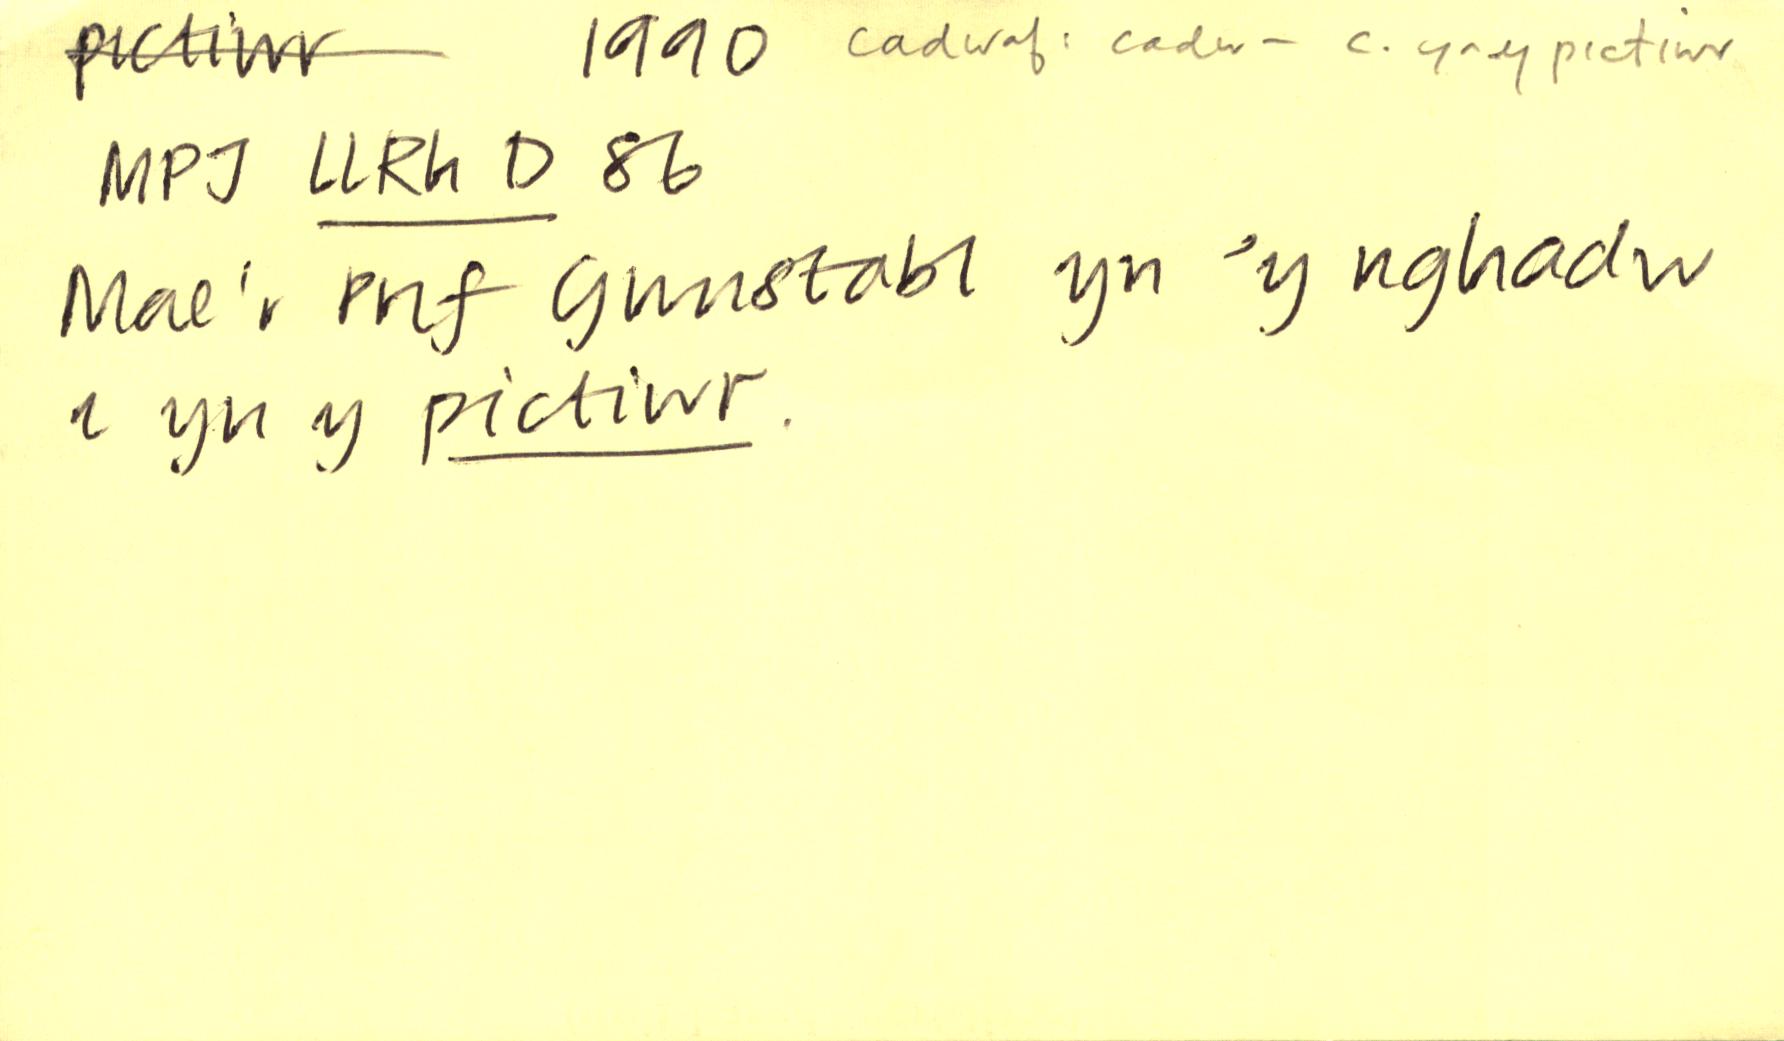 pictiwr 1990 cadwaf: cadw – c. yn y pictiwr
MPJ LLRh D 86
Mae'r Prif Gwnstabl yn 'y nghadw
i yn y pictiwr.